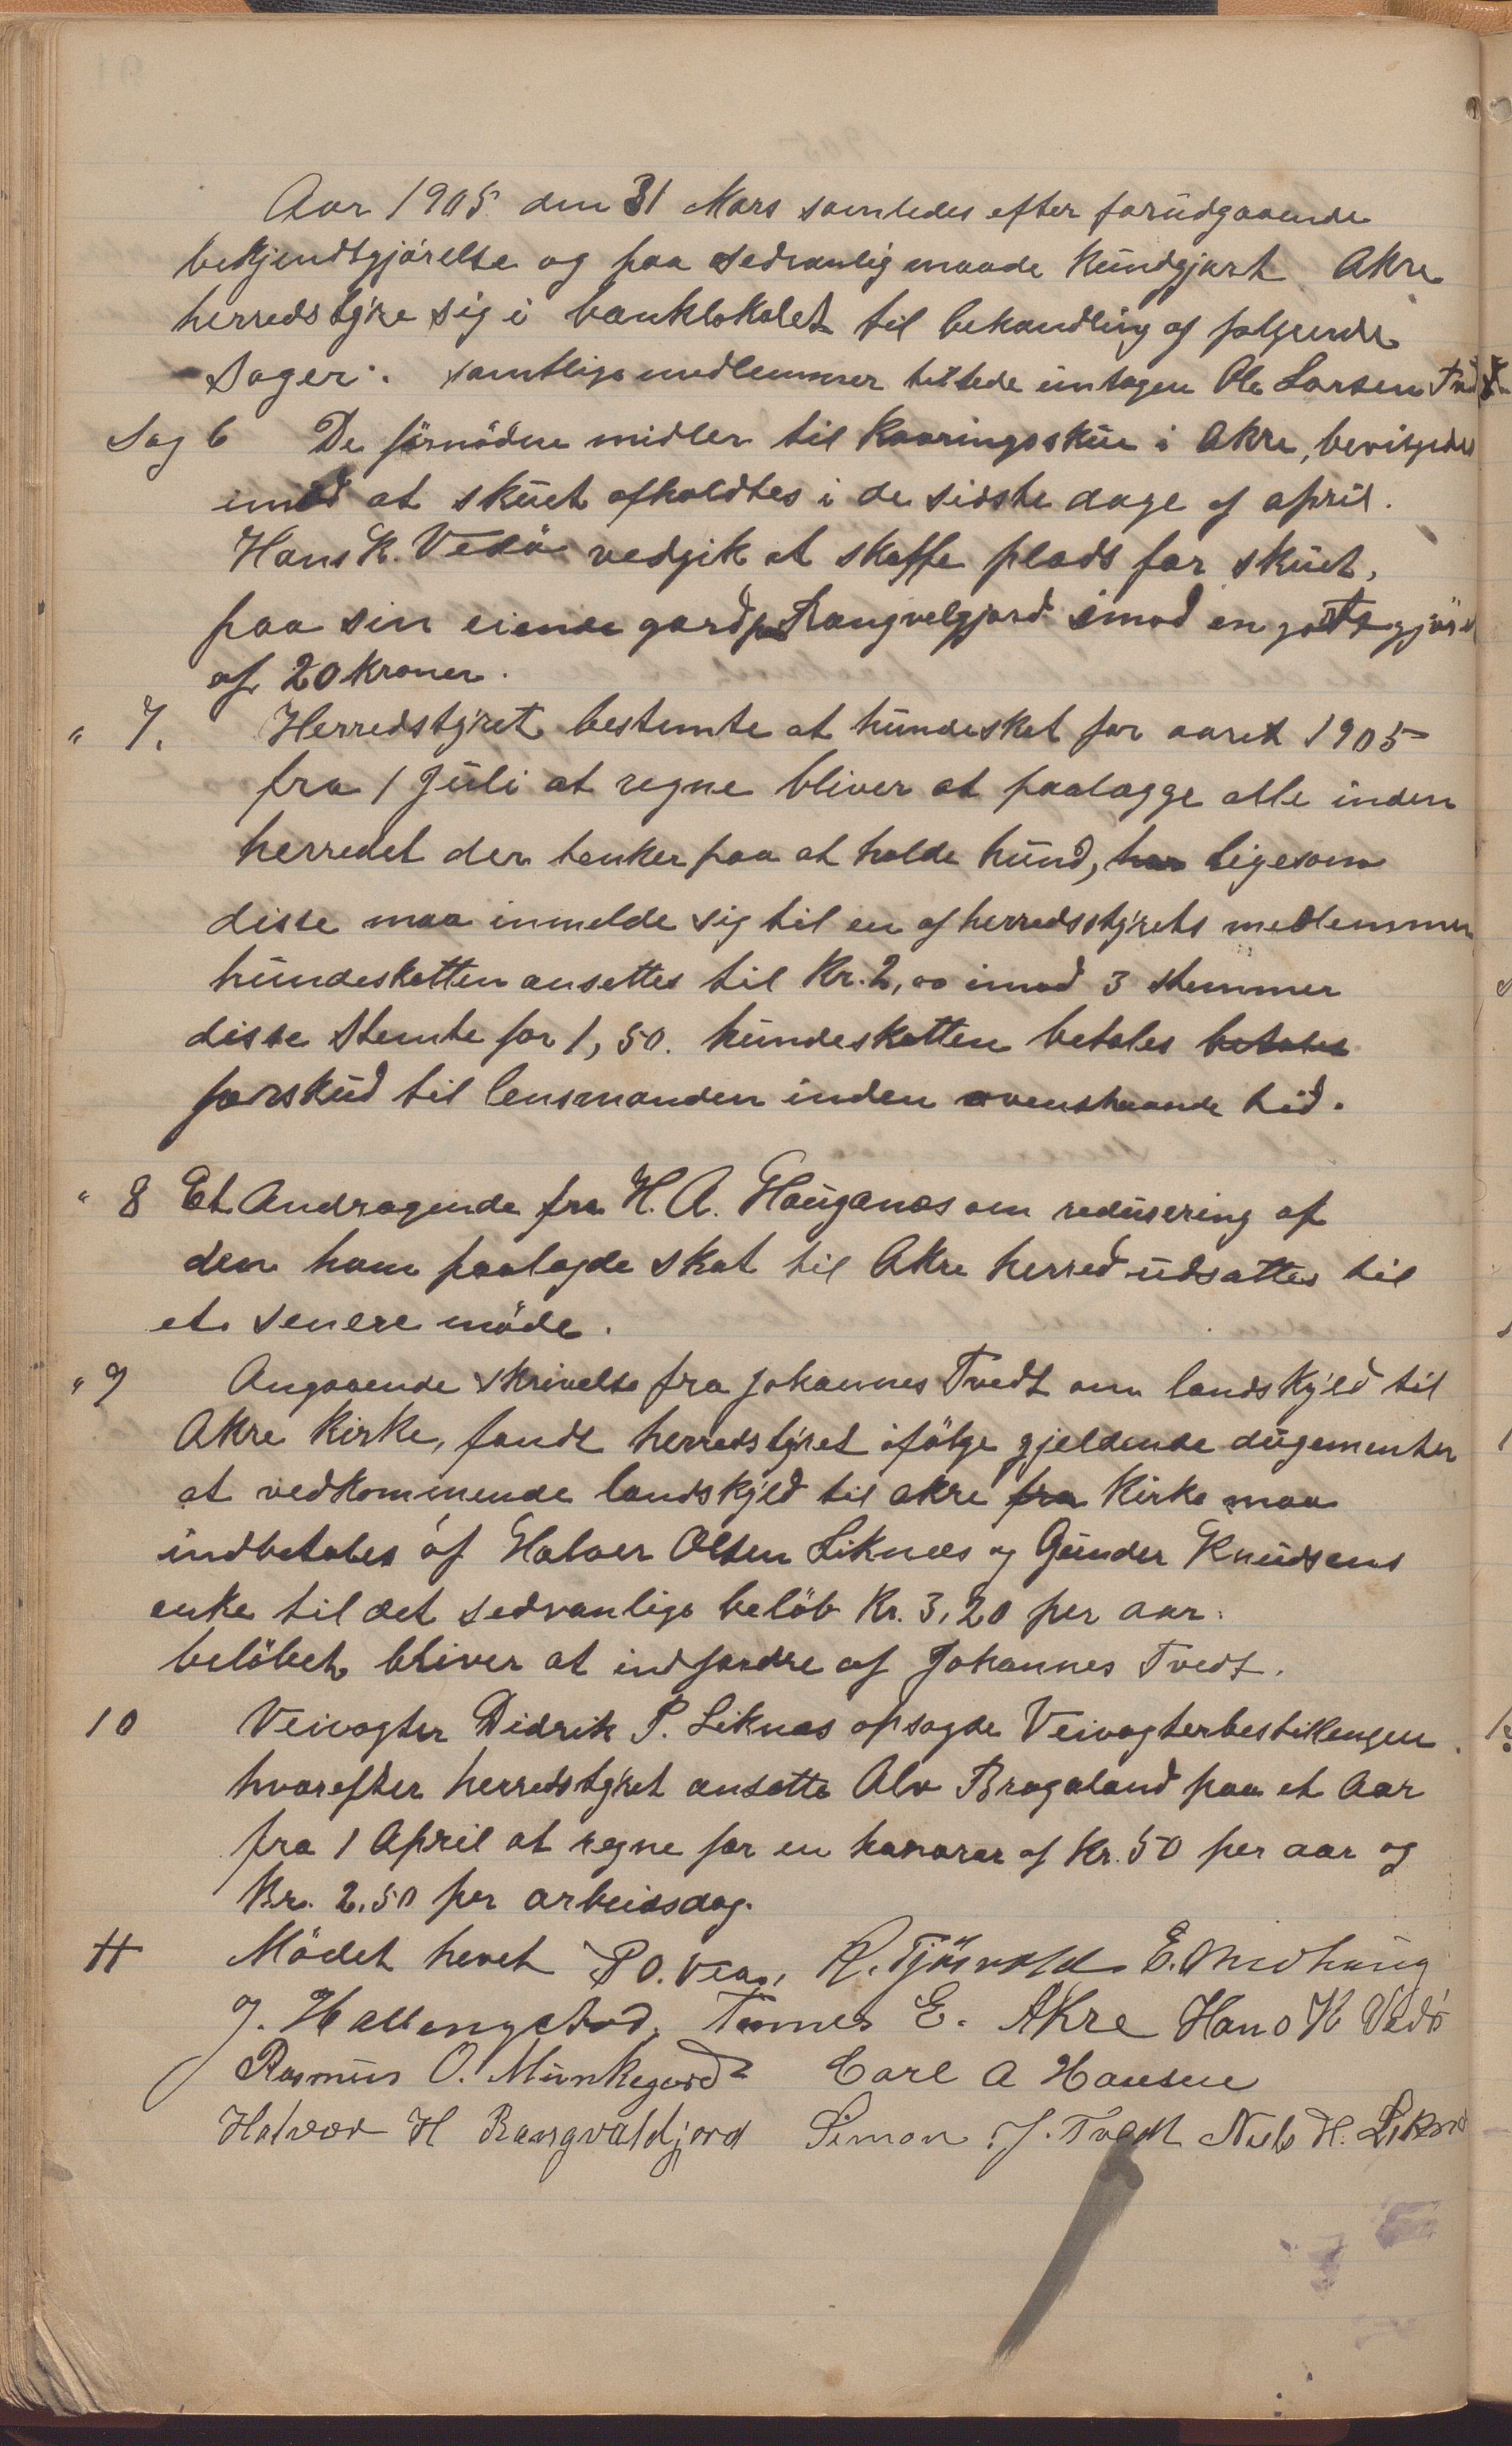 Aar 1905 den 31 Mars samledes efter forudgaaende
bekjendtgjörelse og paa sedvanlig maade kundgjort Akre
herredstyre sig i banklokalet til behandling af følgende
Sager: samtlige medlemmer tilstede imtagen Ole Larsen
Sag 6 De förnödne midler til kaaringsskue i Akre, bevilgedes
imod at skuet afholdtes i de sidste dage af april.
Hans K. Vedö vedgik at skaffe plads for skuet,
paa sin eiende gard paa Rangvelgjord imod en godtgjör
af 20 kroner.
" 7. Herredstyret bestemte at hundeskat for aaret 1905
fra 1 Juli at regne bliver at paalagge alle inden
herredet der tenker paa at holde hund, har ligesom
disse maa inmelde sig til en af herredsstyrets medlemmer
hundeskatten ansettes til Kr. 2,00 imod 3 stemmer
disse stemte for 1,50. hundeskatten betales betales
forskud til lensmanden inden ovenstaande tid.
" 8 Et Andragende fra H. A. Hauganæs om redusering af
den ham paalagde skat til Akre herred udsattes til
et senere möde.
" 9 Angaaende skrivelse fra Johannes Tvedt om landskyld til
Akre Kirke, fandt herredstyret ifölge gjeldende dugementer
at vedkommende landskyld til akre fra Kirke maa
indbetales af Halvor Olsen Liknæs og Gunder Knudsens
enke til det sedvanlige belöb Kr. 3,20 per aar.
belöbet bliver at indfordre af Johannes Tvedt.
10 Veivagter Didrik P. Liknæs opsagde Veivagterbestillengen
hvorefter herredstyret ansatte Alv Bragaland paa et Aar
fra 1 April at regne for en honorar af Kr. 50 per aar og
Kr. 2.50 per arbeidsdag.
11 Mödet hevet P O. Vea, R. Tjösvold E. Midhaug
J. Hallengstad, Tønnes E. Akre Hans K Vedö
Rasmus O. Munkegord Carl A Hansen
Halvor H Rangvaldjord Simon J. Tvedt Niels H. Likn